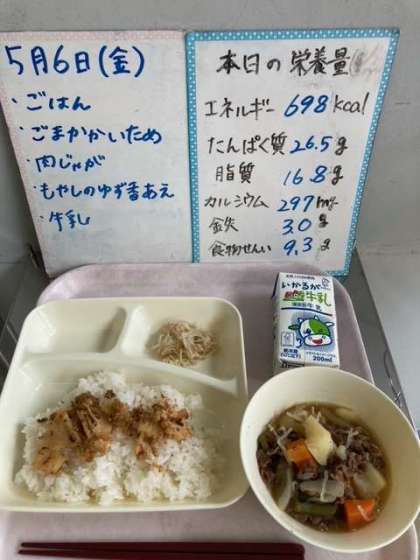 5月6日(金)
・ごはん
・ごまかかいため
・肉じゃが
・もやしのゆず香あえ
・牛乳
本日の栄養量
エネルギー 698kcal
たんぱく質 26.5g
脂質 16.8g
カルシウム 297mg
鉄 3.0g
食物せんい 9.3g
いかるが
牛乳
200ml